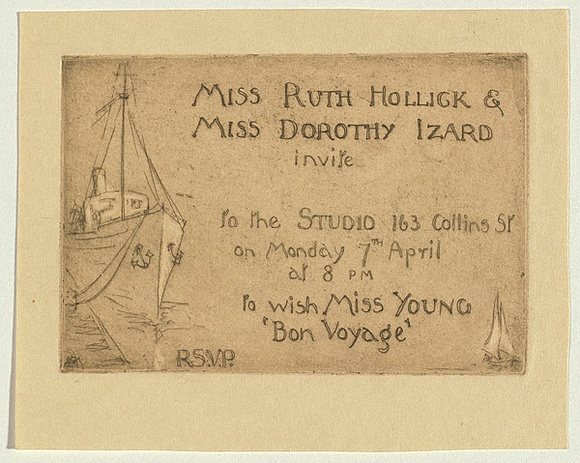 MISS RUTH HOLLICK &
MISS DOROTHY IZARD
invite
to the STUDIO 163 Collins St
on Monday 7TH April
at 8 PM
to wish MISS YOUNG
'Bon Voyage'
R.S.V.P.